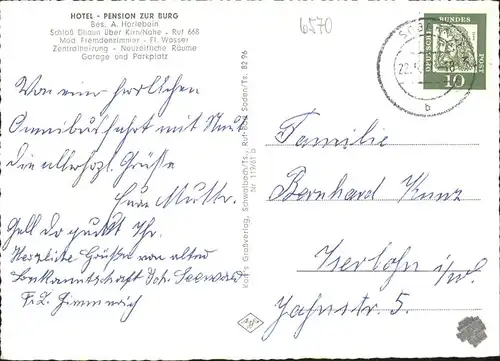 HOTEL - PENSION ZUR BURG
Bes. A. Härlebein
Schloß Dhaun über Kirn/Nahe - Ruf 668
Mod. Fremdenzimmer - Fl. Wasser
Zentralheizung - Neuzeitliche Räume
Garage und Parkplatz
6570
DEUTSCHE BUNDESPOST
10
22.
b
Von einer herrlichen
Omnibusfahrt mit
die allerherzl. Grüße
Eure Mutter.
Gell da guckt Ihr.
Herzliche Grüße von alter
Bekanntschaft Joh.
Frl. Zimmrich
Familie
Bernhard Kunz
Iserlohn i/W.
Jahnstr. 5.
Großverlag, Schwalbach/Ts., Ruf Bad Soden/Ts. 82 96
Nr. 119/61 b